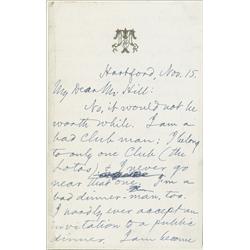 Hartford, Nov. 15.
My Dear Mr. Hill:
No, it would not be
worth while. I am a
bad club man; I belong
to only one Club (the
Lotos) & I never go
near that one. I'm a
bad dinner-man, too.
I hardly ever accept an
invitation to a public
dinner. I am become